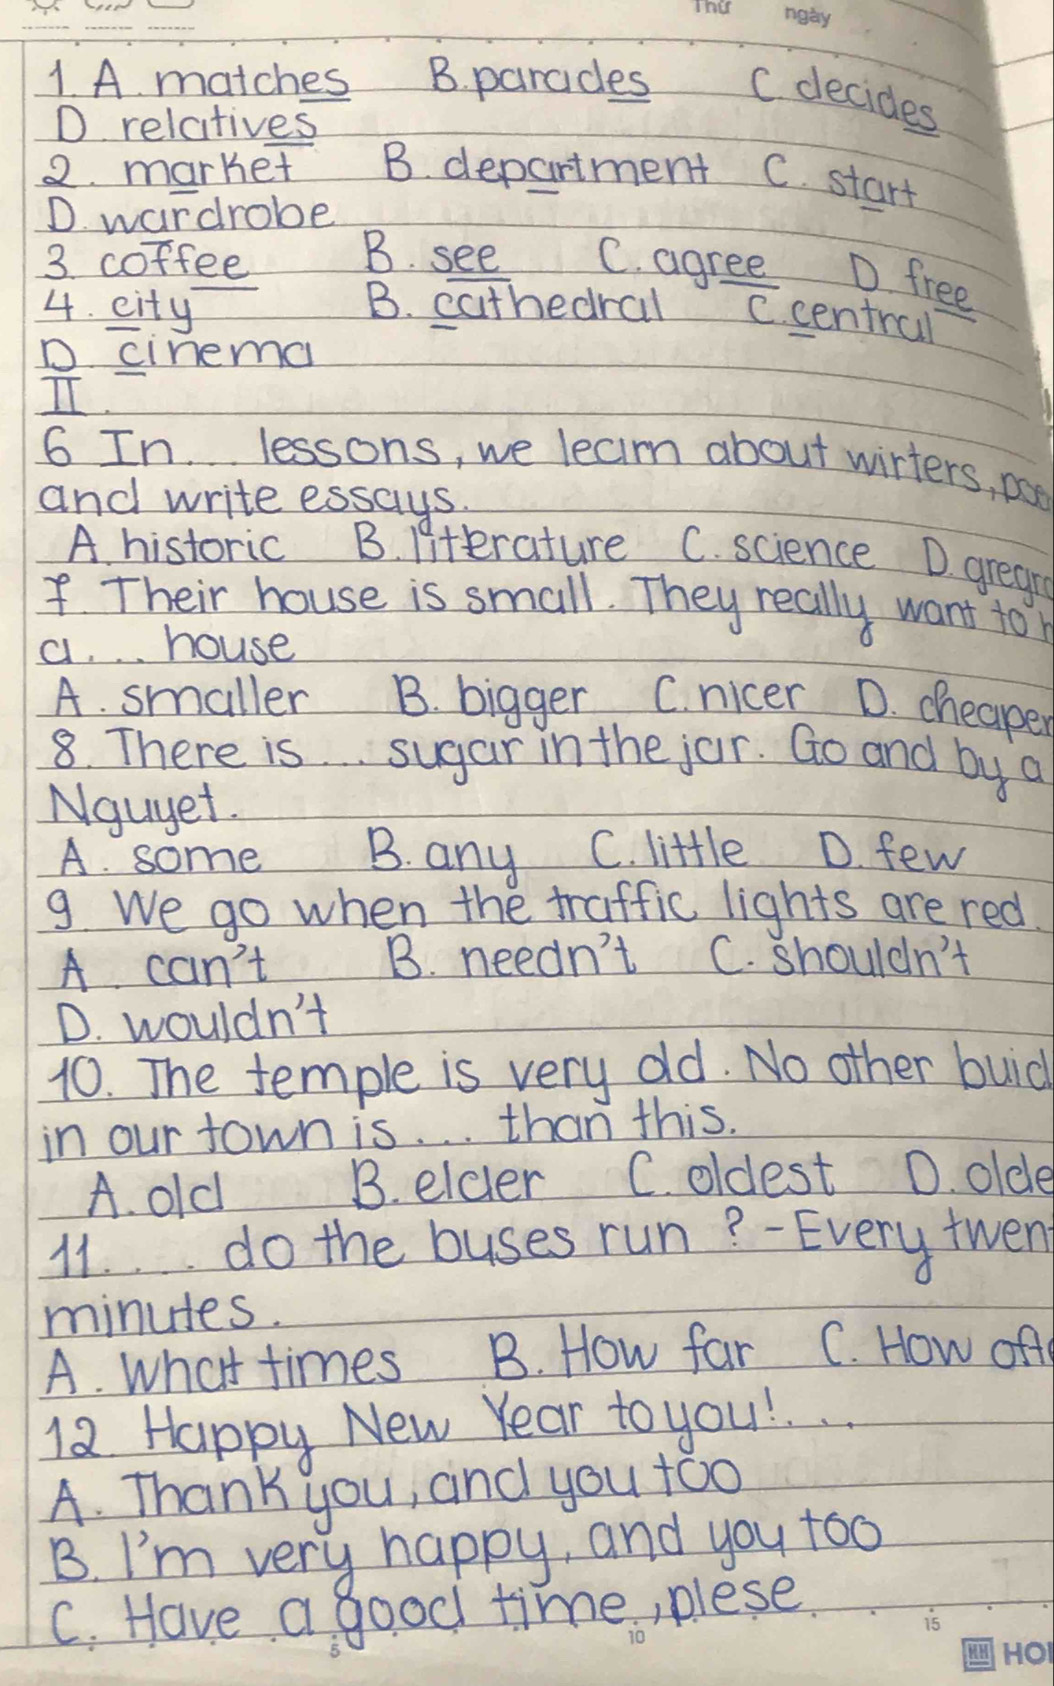 Thứ ngày
1. A. matches B. parades C decides
D relatives
2. market B. department C. start
D. wardrobe
3. coffee B. see C. agree D. free
4. city B. cathedral C. central
D cinema
II.
6 In ... lessons, we learn about wirters,
and write essays.
A. historic B. literature C. science D.
7. Their house is small. They really want to
a .... house
A. smaller B. bigger C. nicer D. cheaper
8. There is ... sugar in the jar. Go and by a
Nguyet.
A. some B. any C. little D. few
9 We go when the traffic lights are red.
A. can't B. needn't C. shouldn't
D. wouldn't
10. The temple is very old. No other buid
in our town is .... than this.
A. old B. elder C. oldest D. olde
11. .... do the buses run ? - Every twen
minutes.
A. What times B. How far C. How ofte
12. Happy New Year to you! ...
A. Thank you, and you too
B. I'm very happy, and you too
C. Have a good time, plese
5 10 15
HO